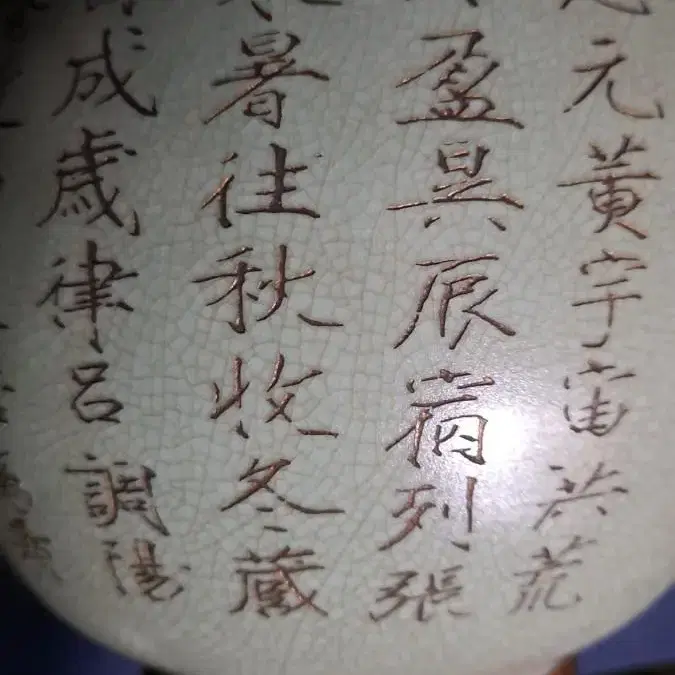 元黃宇宙洪荒
盈昃辰宿列張
暑往秋收冬藏
成歲律呂調陽